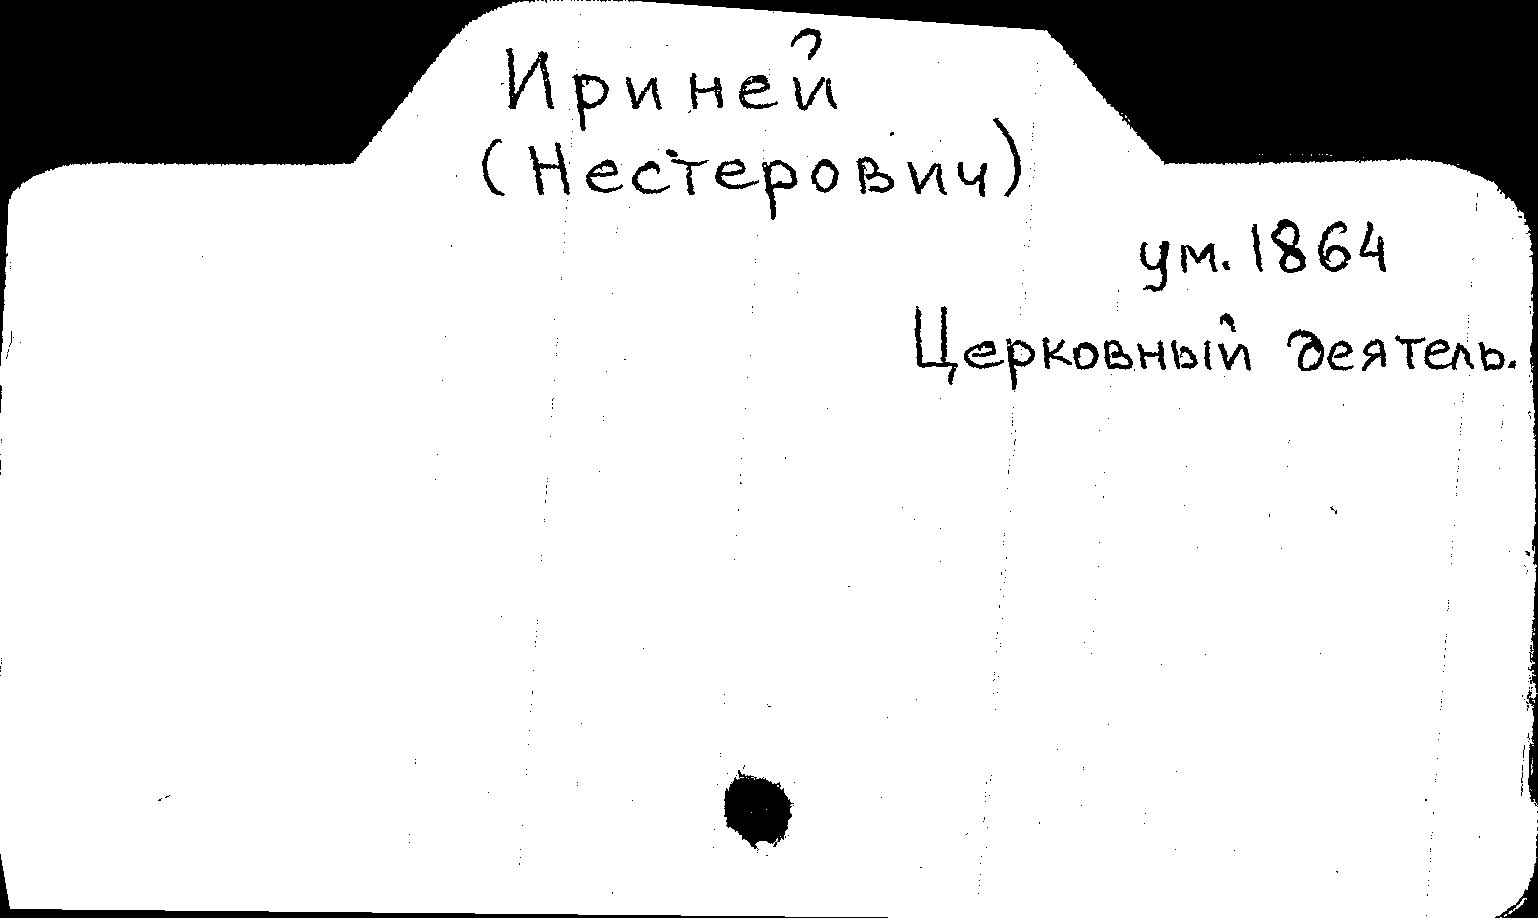 Ириней
(Нестерович)
ум. 1864
Церковный деятель.